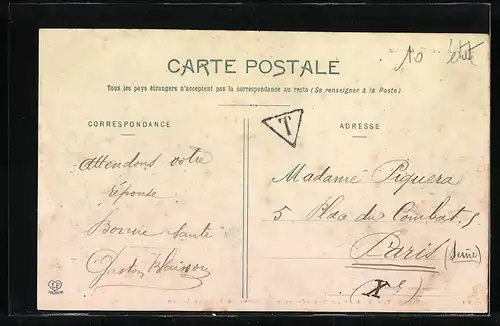 10
CARTE POSTALE
Tous les pays étrangers n'acceptent pas la correspondance au recto (Se renseigner à la Poste)
T
CORRESPONDANCE
ADRESSE
Attendons votre
réponse
Bonne santé
Gaston
Madame Piquera
5 Place du Combat 5
Paris (Seine)
(Xe)
LP